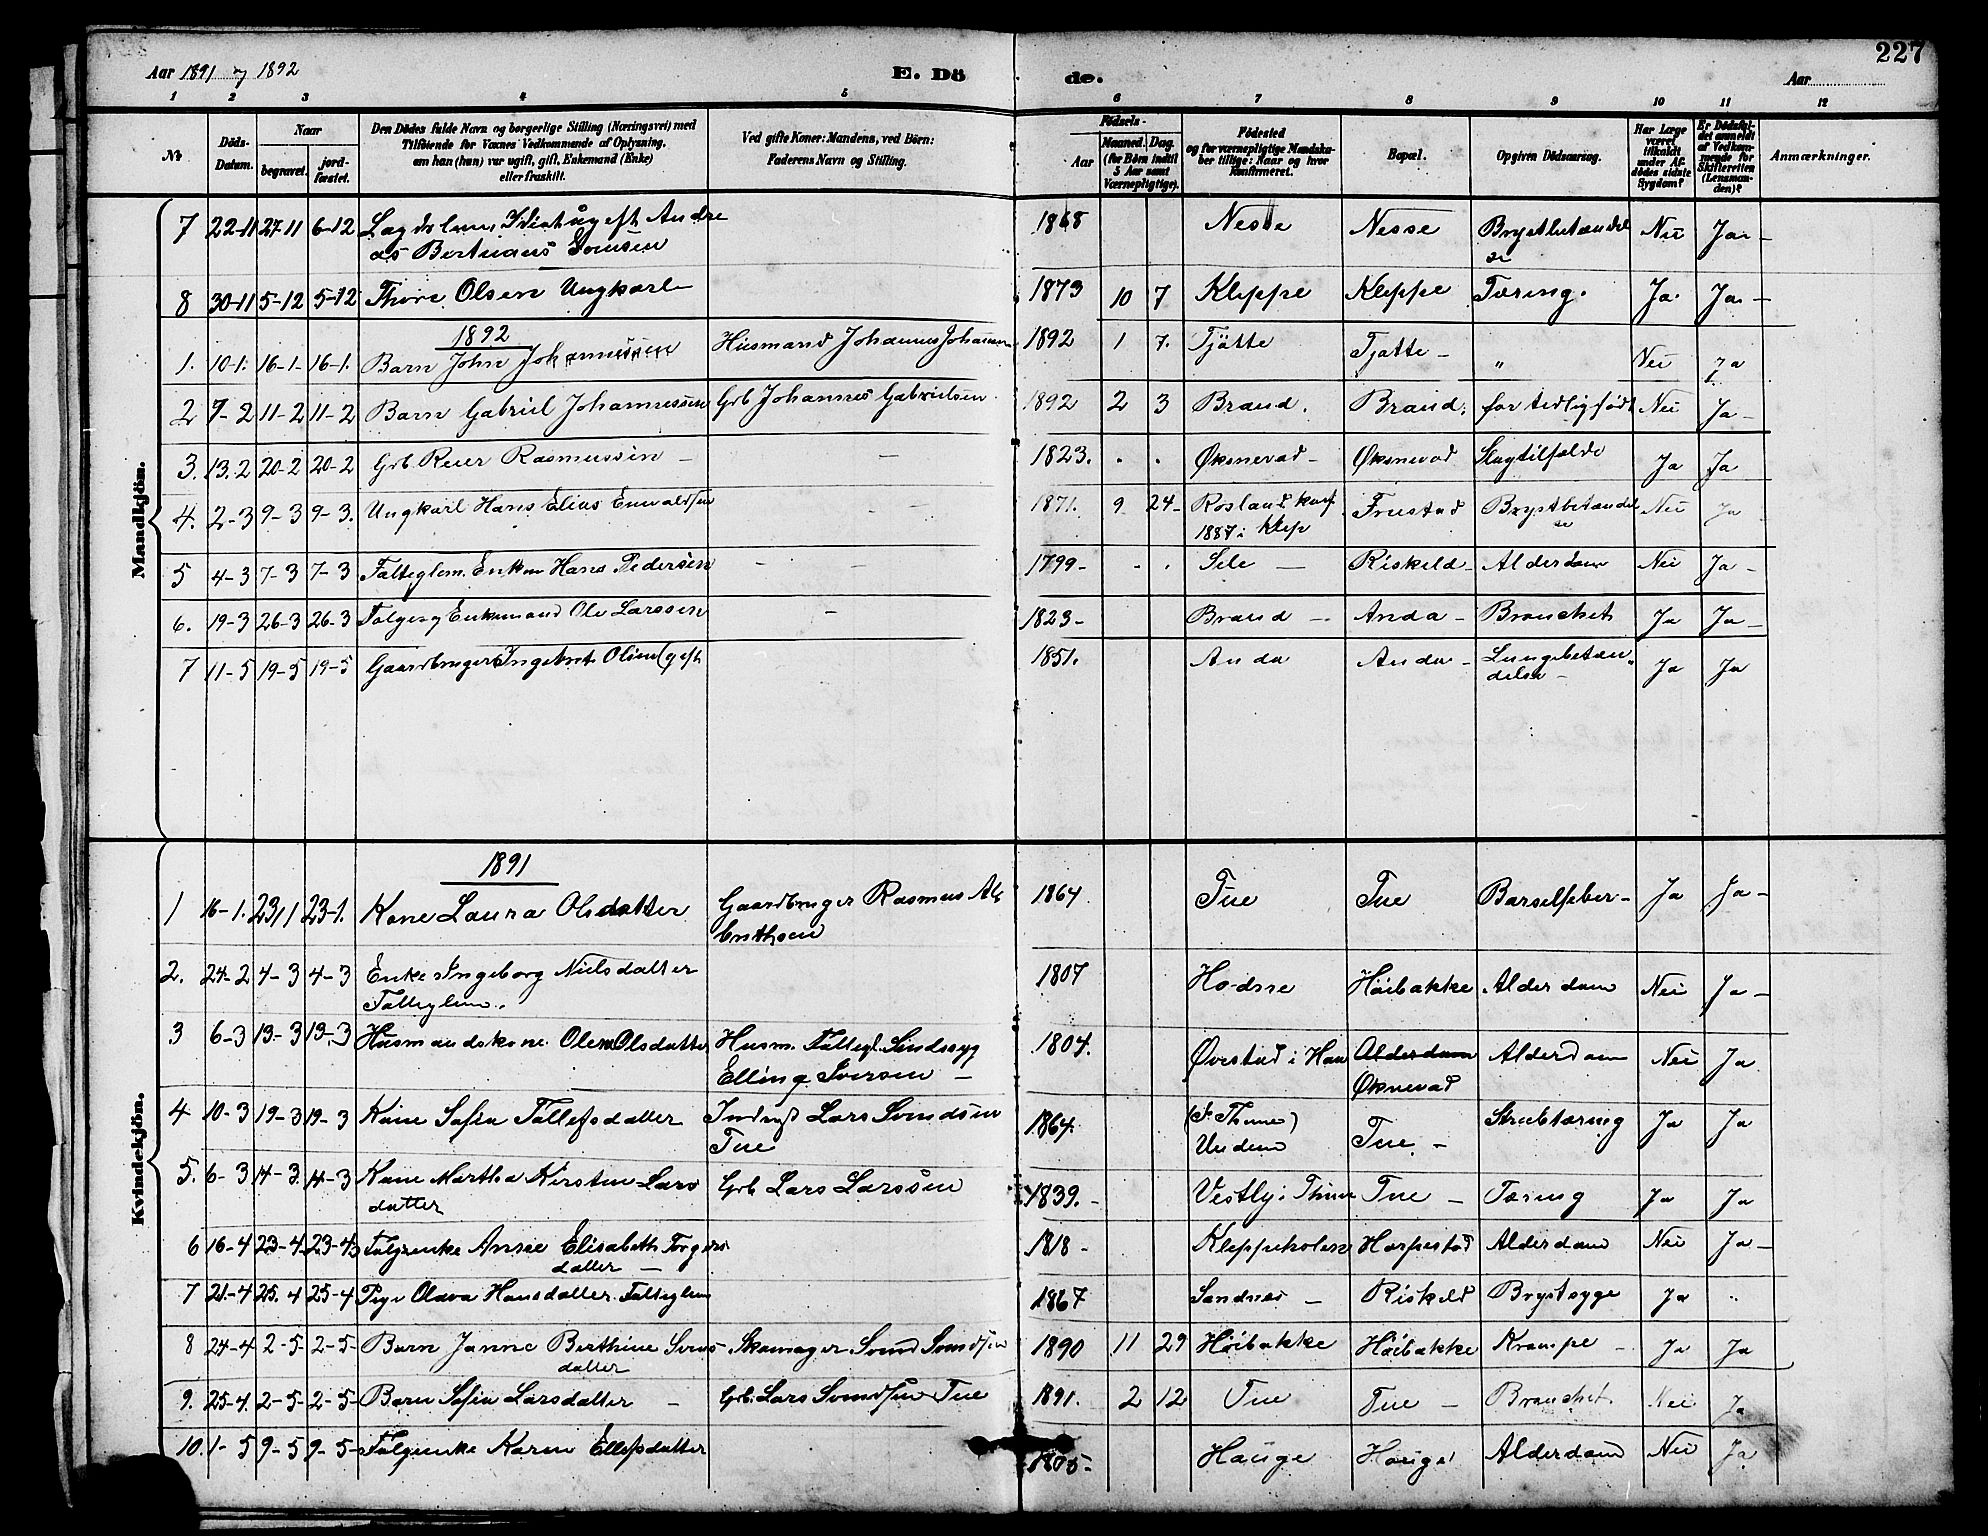 227
Aar 1891 og 1892
E. Dö
de.
Aar
1 2 3 4 5 6 7 8 9 10 11 12
No
Döds-Datum.
Naar
begravet.
jord-fæstet.
Den Dödes fulde Navn og borgerlige Stilling (Næringsvei) med
Tilföiende for Voxnes Vedkommende af Oplysning,
om han (hun) var ugift, gift, Enkemand (Enke)
eller fraskilt.
Ved gifte Koner: Mandens, ved Börn:
Faderens Navn og Stilling.
Födsels-
Aar
Maaned. Dag.
(for Börn indtil
5 Aar samt
Værnepligtige).
Födested
og for værnepligtige Mandska-
ber tillige: Naar og hvor
konfirmeret.
Bopæl.
Opgiven Dödsaarsag.
Har Læge
været
tilkaldt
under Af-
dödes sidste
Sygdom?
Er Dödsfal-
det anmeldt
af Vedkom-
mende for
Skifteretten
(Lensman-
den)?
Anmærkninger.
Mandkjön.
7 22-11 27-11 6-12 ugift Andre 1868 Nesse Nesse Brystbetændel Nei Ja-
as Bertinius se
8 30-11 5-12 5-12 Thore Olsen Ungkarl 1873 10 7 Kleppe Kleppe Tæring. Ja Ja-
1892
1. 10-1. 16-1- 16-1. Barn John Johannessen Husmand Johannes Johannes 1892 1 7. Tjøtte Tjøtte- " Nei Ja
2 7-2 11-2 11-2 Barn Gabriel Johannessen Grb Johannes Gabrielsen. 1892 2 3 Braud. Braud. for tidlig født Nei Ja-
3. 13.2 20-2 20-2 Grb. Reier Rasmussen - - 1823. . . Øksnevad- Øksnevad Slagtilfælde Ja Ja
4. 2-3 9-3 9-3. Ungkarl Hans Elias Enevaldsen 1871. 9 24- Rosland konf Friestad Brystbetændel Nei Ja
1887 i Klep se
5 4-3 7-3 7-3 Fattiglem. Enkem Hans Pedersen - - 1799- - . Sele - Riskeld- Alderdom Nei Ja-
6. 19-3 26-3 26-3 Enkemand Ole Larssen - 1823- Braud - Anda- Bronchit Ja Ja-
7 11-5 19-5 19-5 Gaardbruger Ingebret Olsen (gift 1851. Anda Anda- Lungebetæn Ja Ja
delse-
Kvindekjön.
1891
1 16-1. 23/1 23-1. Kone Laura Olsdatter Gaardbruger Rasmus Al 1864 Tue Tue Barselfeber- Ja Ja-
bertsen
2. 24-2 4-3 4-3 Enke Ingeborg Nielsdatter 1807 Hodne Høibakke Alderdom Nei Ja-
Fattiglem.
3 6-3 13-3 13-3 Husmandskone Olene Olsdatter Husm. Fattigl. Sindssyg 1804. Øvestad i Haa Alderdom Alderdom Nei Ja
Elling Iversen - Øksnevad
4 10-3 19-3 19-3 Kone Sofia Tollefsdatter Inds Lars Svendsen 1864. (F. Thime) Tue - Strubetæring Ja Ja
Tue Undem
5. 6-3 14-3. 14-3 Kone Martha Kirstine Lars Grb Lars Larssen 1839.- Vestly i Thime Tue - Tæring Ja Ja
datter
6 16-4 23-4. 23-4 Enke Anne Elisabeth Torgers 1818- Kleppeholen Horpestad Alderdom Nei Ja-
datter -
7 21-4 25.4 25-4 Pige Olava Hansdatter Fattiglem 1867 Sandnes - Riskeld Brystsyge Ja "
8 24-4 2-5- 2-5- Barn Janne Berthine Svens Skomager Svend Svendsen 1890 11 29 Høibakke Høibakke Krampe - Ja Ja
datter
9. 25-4. 2-5- 2-5- Barn Sofia Larsdatter - Grb. Lars Svendsen Tue 1891. 2 12 Tue Tue - Bronchit. Nei Ja
10. 1-5 9-5 9-5- Karen Ellefsdatter 1805- Hauge Hauge Alderdom Nei Ja